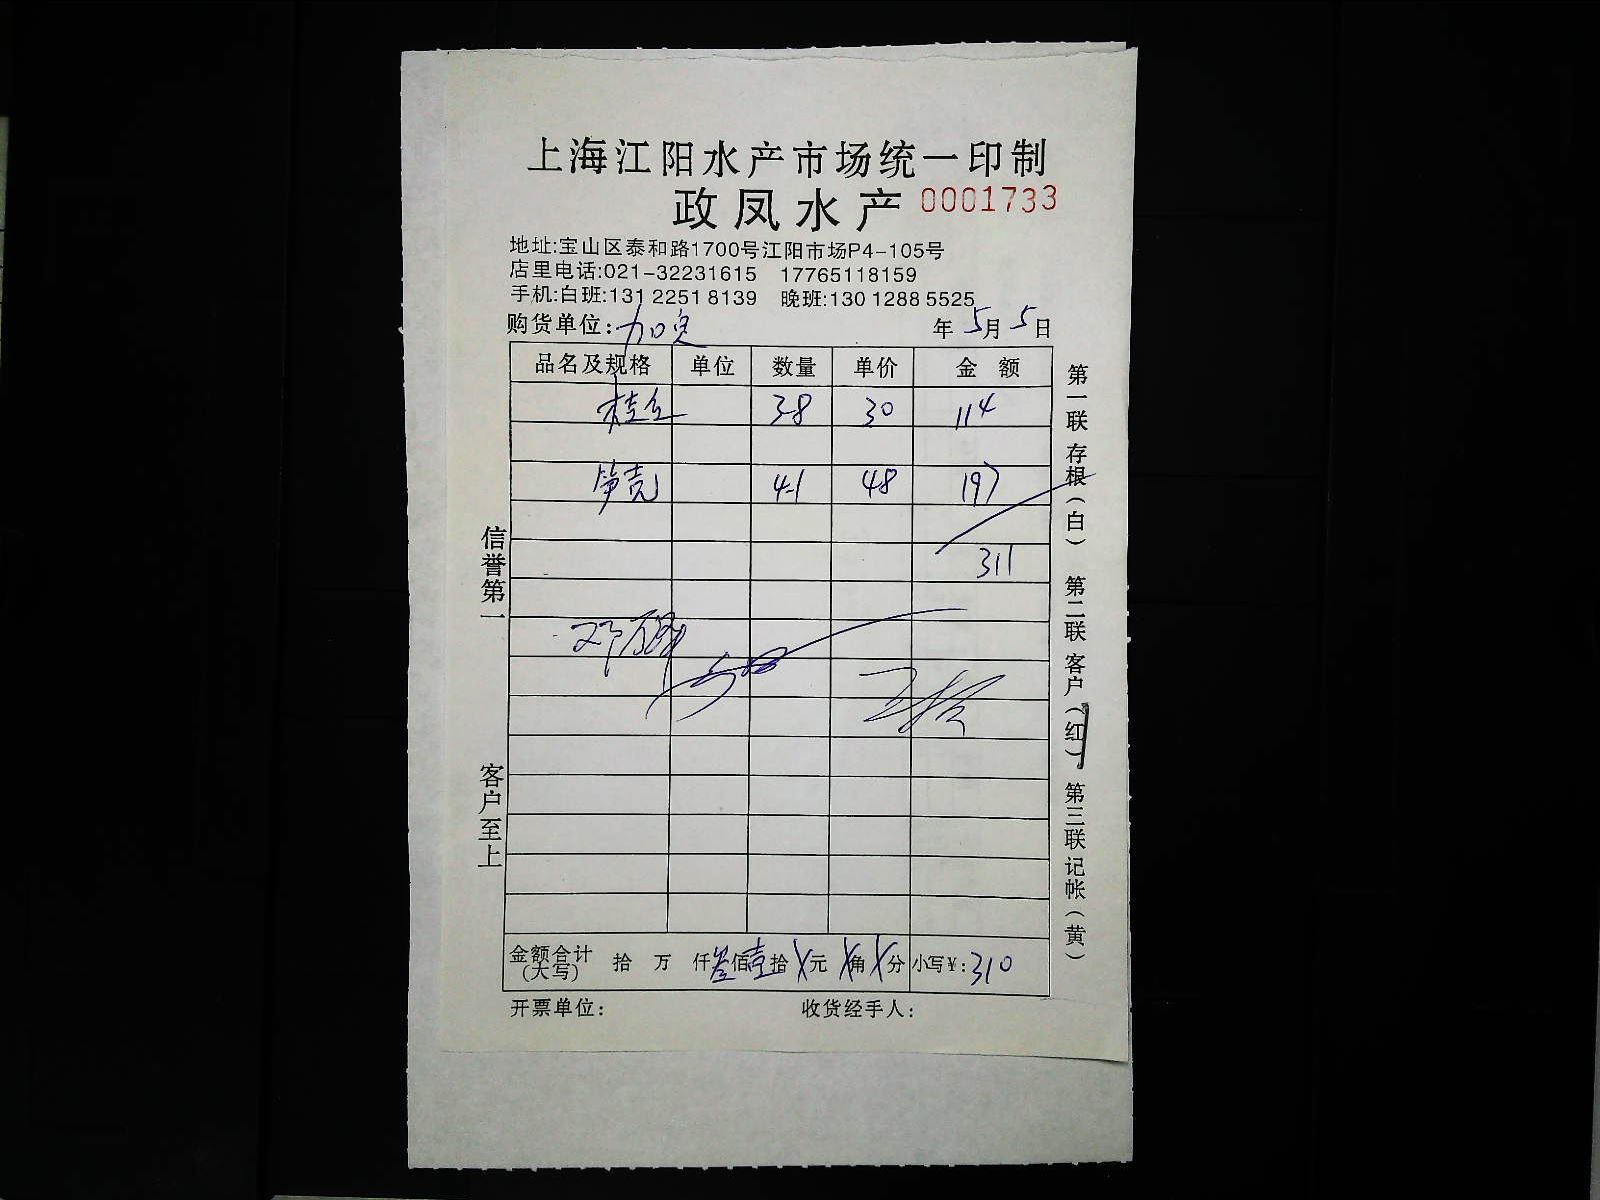 上海江阳水产市场统一印制
政凤水产 0001733
地址:宝山区泰和路1700号江阳市场P4-105号
店里电话:021-32231615 17765118159
手机:白班:131 2251 8139 晚班:130 1288 5525
购货单位:加
年 5月 5日
品名及规格 单位 数量 单价 金 额
桂 3-8 30 114
笋壳 4-1 48 197
311
金额合计(大写) 拾 万 仟叁佰壹拾X元X角X分 小写¥:310
开票单位: 收货经手人:
信誉第一
客户至上
第一联 存根(白) 第二联 客户(红) 第三联 记帐(黄)